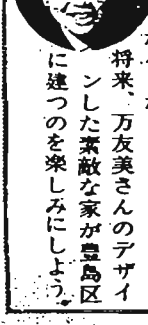 将来、万友美さんのデザイ
ンした素敵な家が豊島区
に建つのを楽しみにしよう。